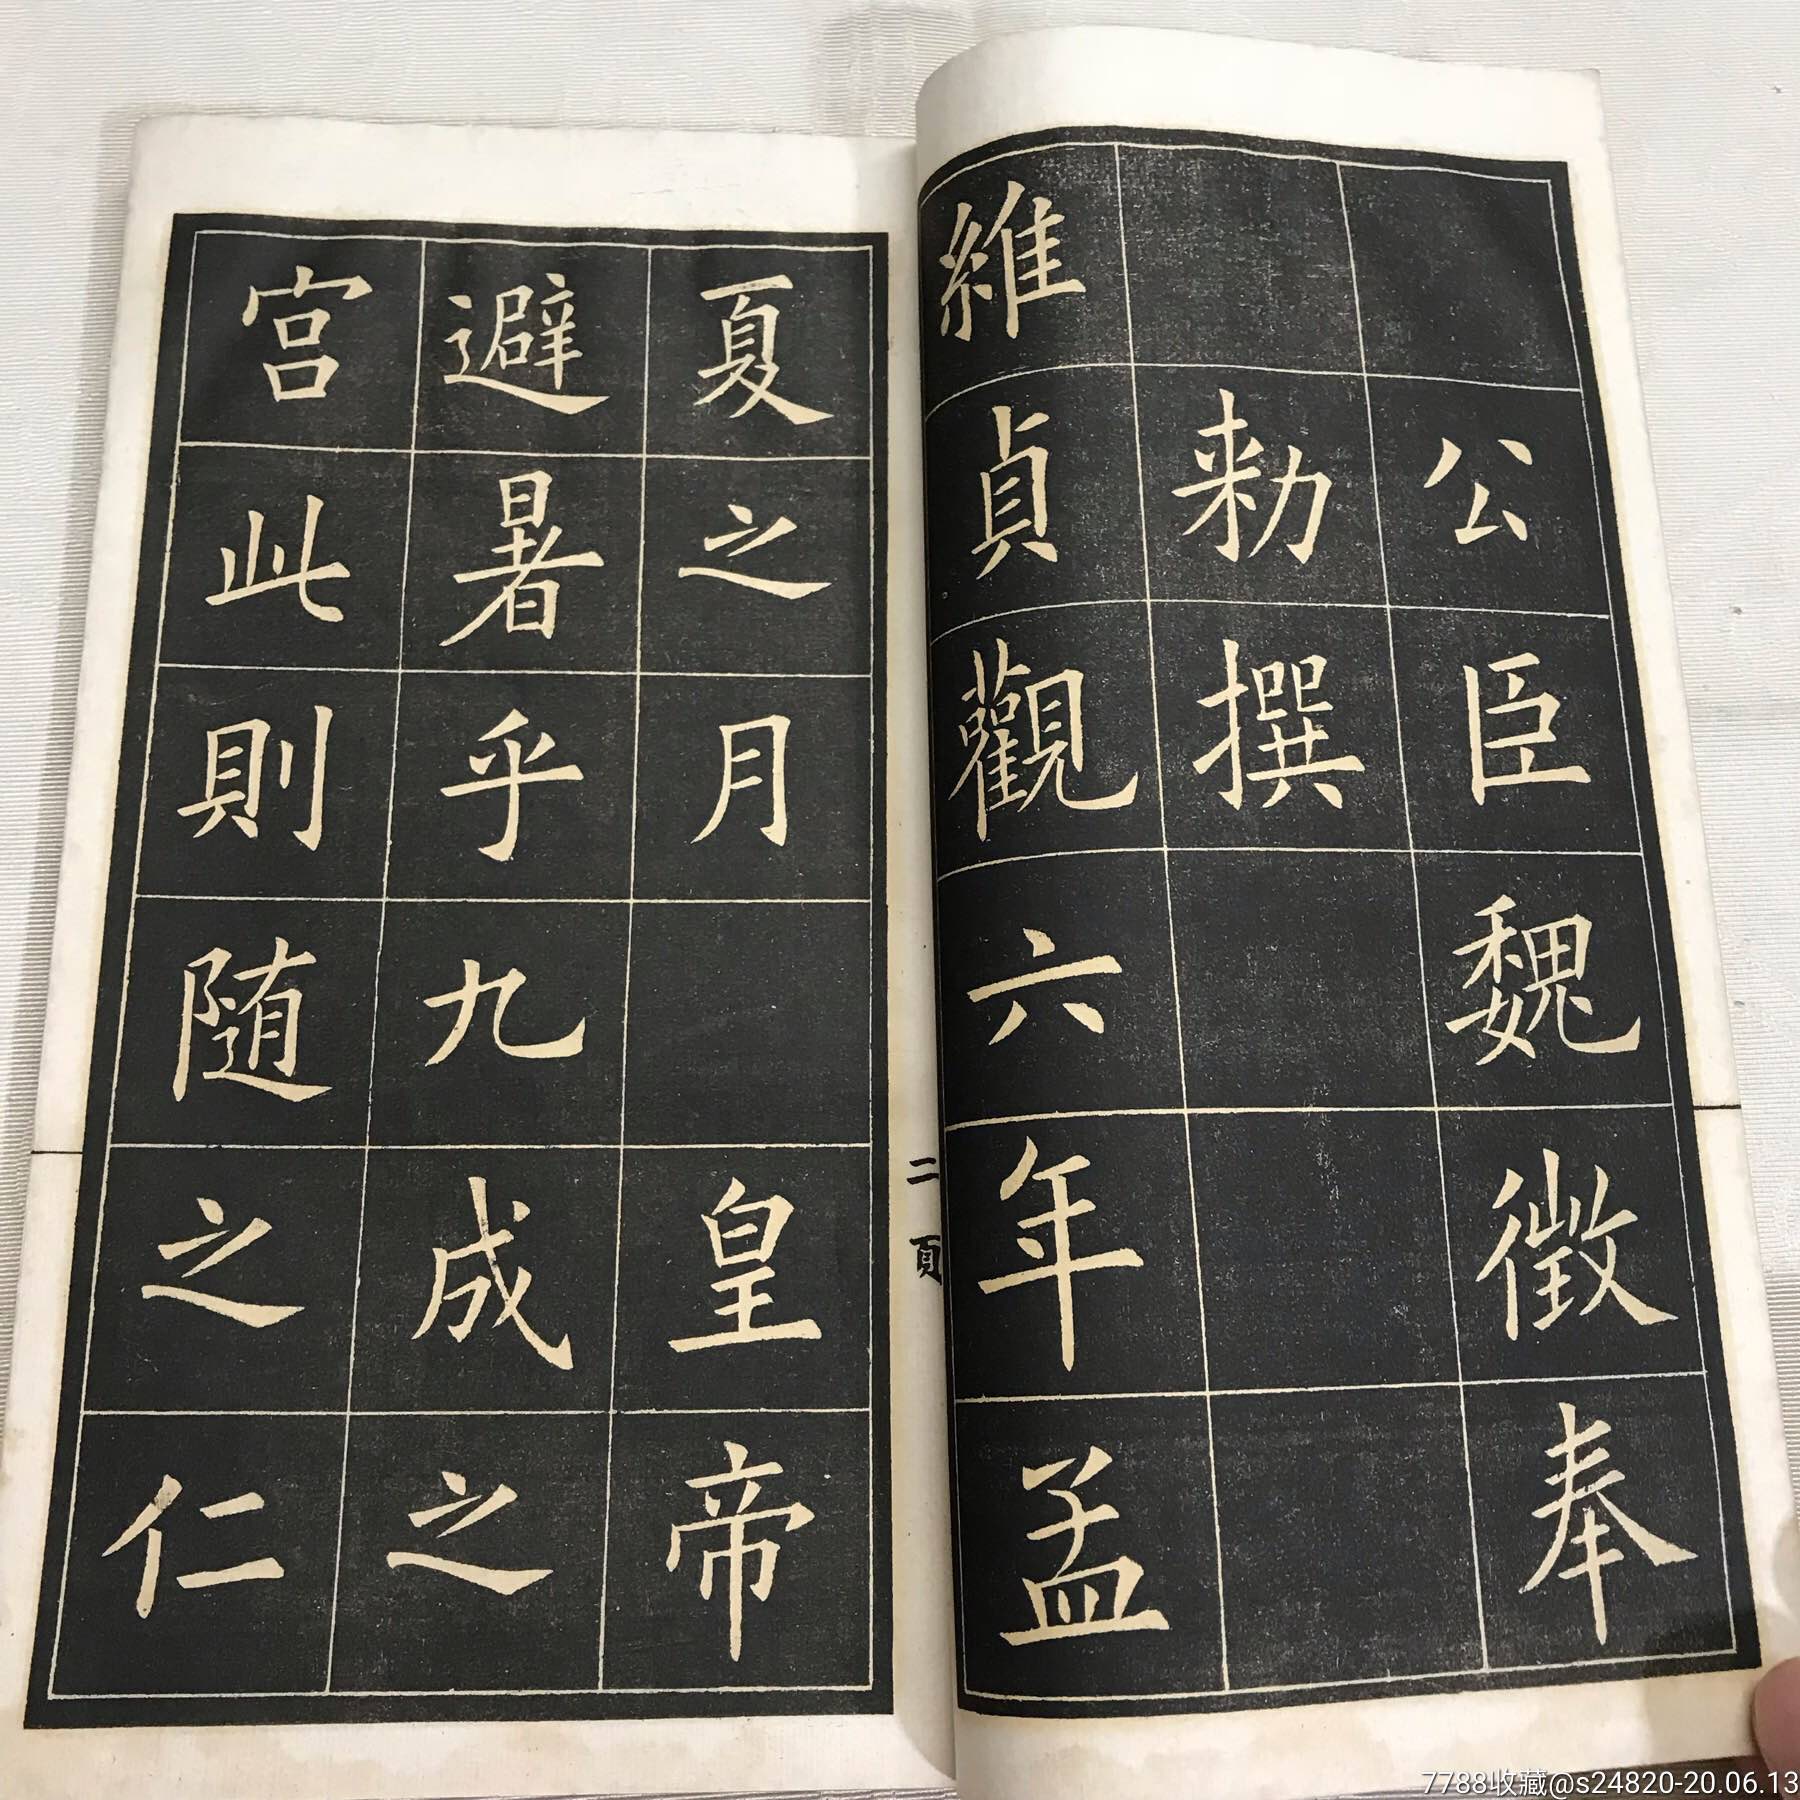 公臣魏徵奉
勑撰
維貞觀六年孟
夏之月 皇帝
避暑乎九成之
宫此則随之仁
二頁
7788收藏@s24820-20.06.13